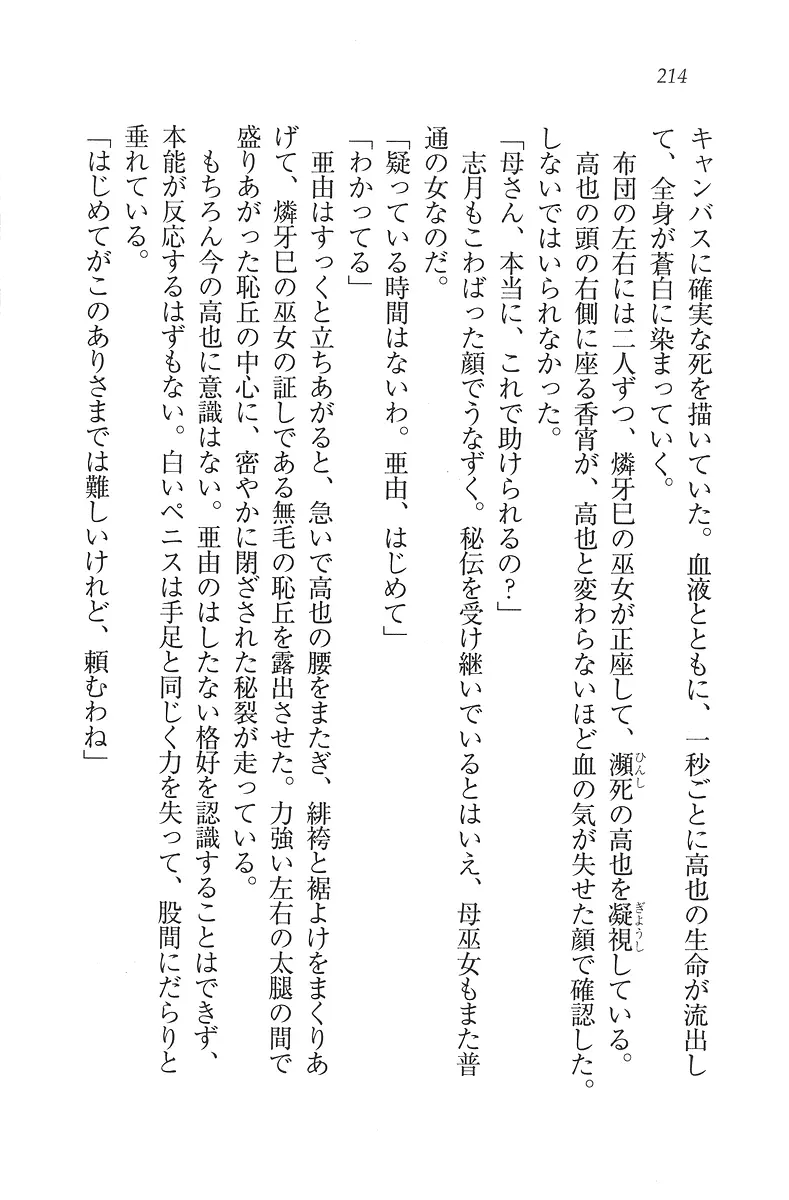 214
キャンバスに確実な死を描いていた。血液とともに、一秒ごとに高也の生命が流出し
て、全身が蒼白に染まっていく。
布団の左右には二人ずつ、燐牙巳の巫女が正座して、瀕死の高也を凝視している。
ひんし
ぎょうし
高也の頭の右側に座る香宵が、高也と変わらないほど血の気が失せた顔で確認した。
しないではいられなかった。
「母さん、本当に、これで助けられるの?」
志月もこわばった顔でうなずく。秘伝を受け継いでいるとはいえ、母巫女もまた普
通の女なのだ。
「疑っている時間はないわ。亜由、はじめて」
「わかってる」
亜由はすっくと立ちあがると、急いで高也の腰をまたぎ、緋袴と裾よけをまくりあ
げて、燐牙巳の巫女の証しである無毛の恥丘を露出させた。力強い左右の太腿の間で
盛りあがった恥丘の中心に、密やかに閉ざされた秘裂が走っている。
もちろん今の高也に意識はない。亜由のはしたない格好を認識することはできず、
本能が反応するはずもない。白いペニスは手足と同じく力を失って、股間にだらりと
垂れている。
「はじめてがこのありさまでは難しいけれど、頼むわね」